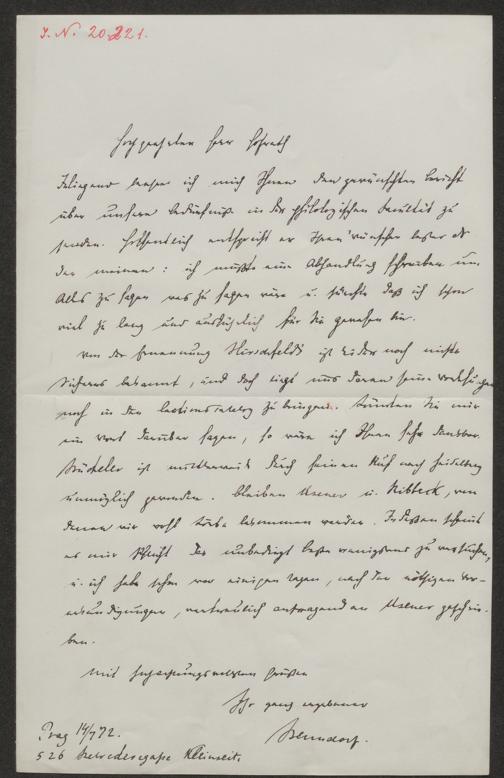 J. N. 20.221.
Hochgeehrter Herr Hofrath
Inliegend beehre ich mich Ihnen den gewünschten Bericht
über unsere Bedürfniße in der philologischen Facultät zu
senden. Hoffentlich entspricht er Ihren Wünschen besser als
den meinen: ich mußte eine Abhandlung schreiben um
Alles zu sagen was zu sagen wäre u. fürchte daß ich schon
viel zu lang und ausführlich für Sie gewesen bin.
Von der Ernennung Hirschfelds ist leider noch nichts
Sicheres bekannt, und doch liegt uns daran seine Vorlesungen
noch in den Lectionscatalog zu bringen. Könnten Sie mir
ein Wort darüber sagen, so wäre ich Ihnen sehr dankbar.
Bücheler ist mittlerweile durch seinen Ruf nach Heidelberg
unmöglich geworden. Bleiben Usener u. Ribbeck, von
denen wir wohl Körbe bekommen werden. Indeßen scheint
es mir Pflicht das unbedingt Beste wenigstens zu versuchen,
u. ich habe schon vor einigen Tagen, nach den nöthigen Ver-
ständigungen, vertraulich anfragend an Usener geschrie-
ben.
Mit hochachtungsvollen Grüßen
Ihr ganz ergebener
Benndorf.
Prag 14/7 72.
526 Belvederegasse Kleinseite.